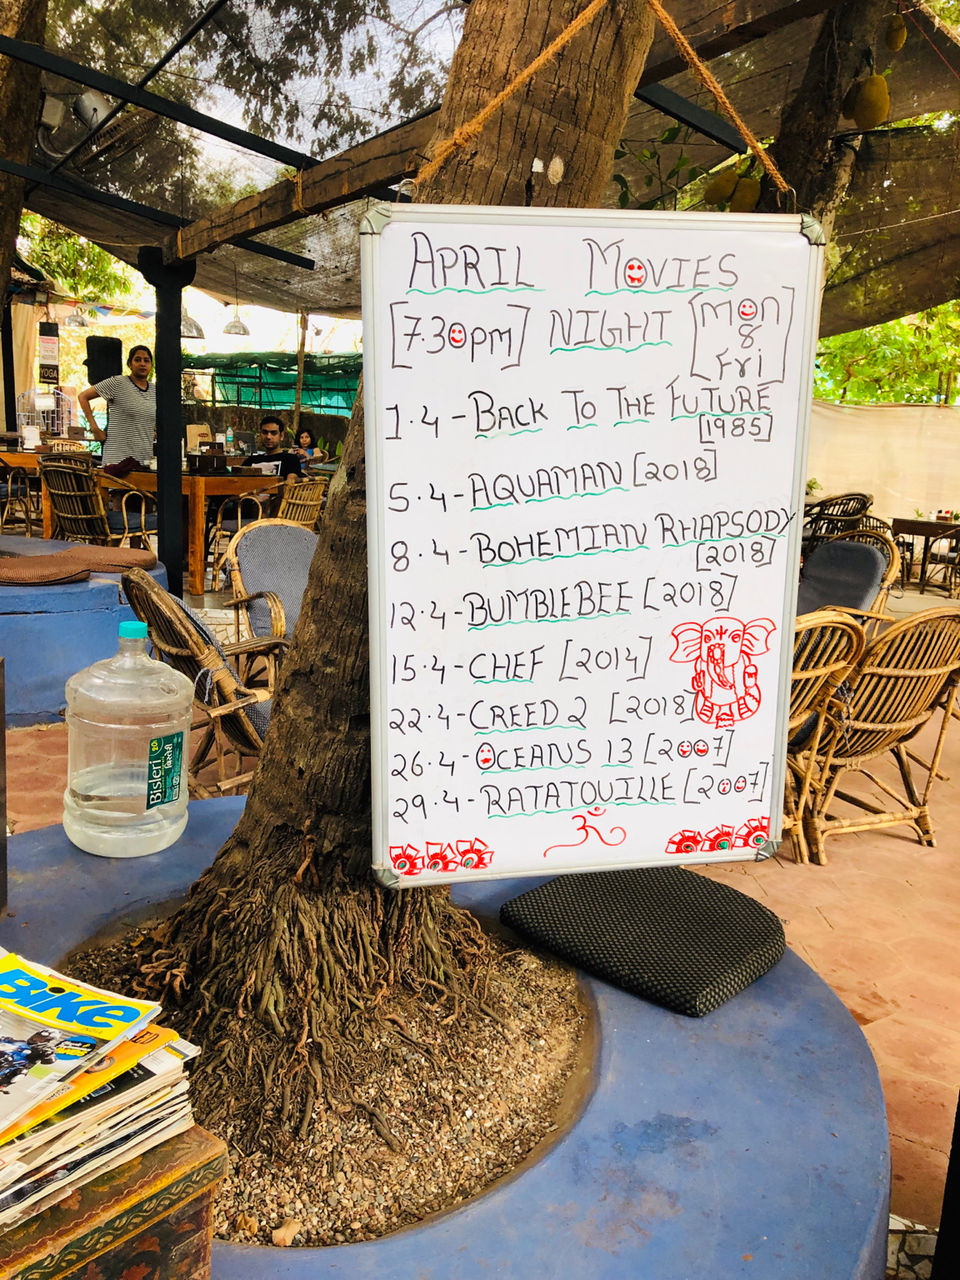 APRIL MOVIES
[7.30pm] NIGHT [Mon
&
Fri]
1.4-BACK TO THE FUTURE
[1985]
5.4-AQUAMAN [2018]
8.4-BOHEMIAN RHAPSODY
[2018]
12.4-BUMBLEBEE [2018]
15.4-CHEF [2014]
22.4-CREED 2 [2018]
26.4-OCEANS 13 [2007]
29.4-RATATOUILLE [2007]
ॐ
YOGA
Bisleri
20
BiKe
INDIA